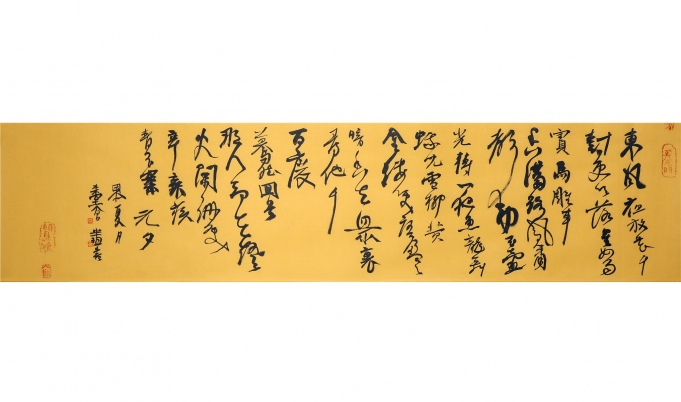 東風夜放花千
樹更吹落星如雨
寶馬雕車
香滿路鳳簫
聲動玉壺
光轉一夜魚龍舞
蛾兒雪柳黃
金縷笑語盈盈
暗香去眾裏
尋他千
百度
驀然回首
那人卻在燈
火闌珊處
辛棄疾
青玉案 元夕
夏月